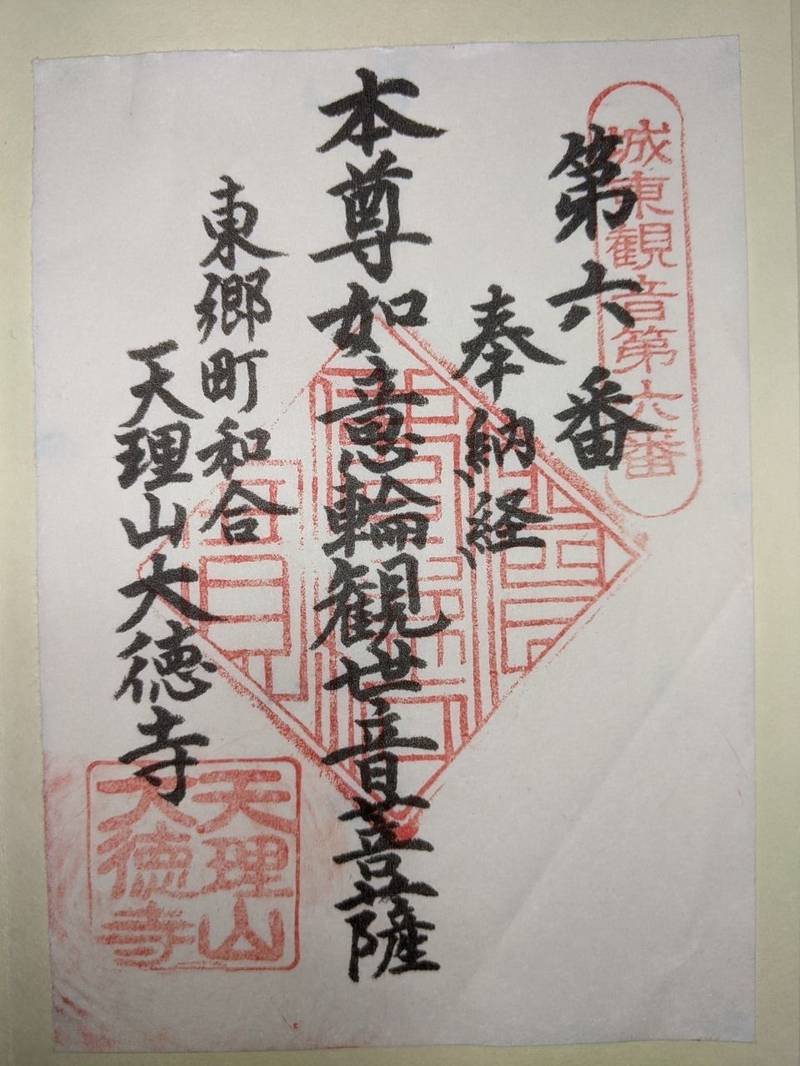 城東観音第六番
第六番
奉納経
本尊如意輪観世音菩薩
東郷町和合
天理山大徳寺
天理山
大徳寺